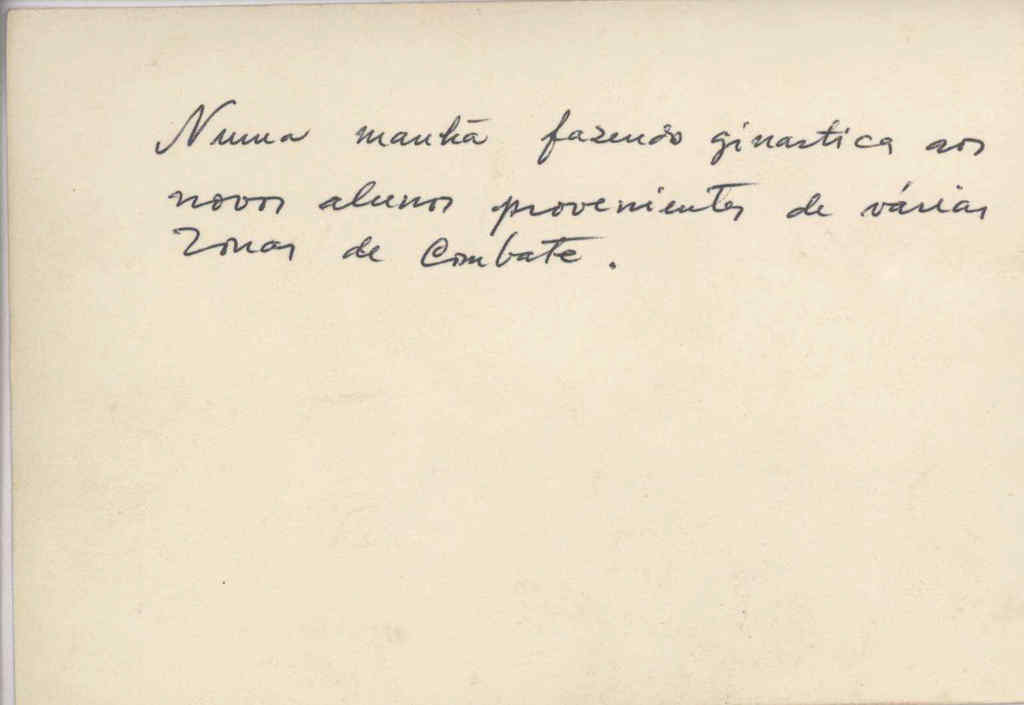 Numa manhã fazendo ginastica aos
novos alunos provenientes de várias
Zonas de Combate.